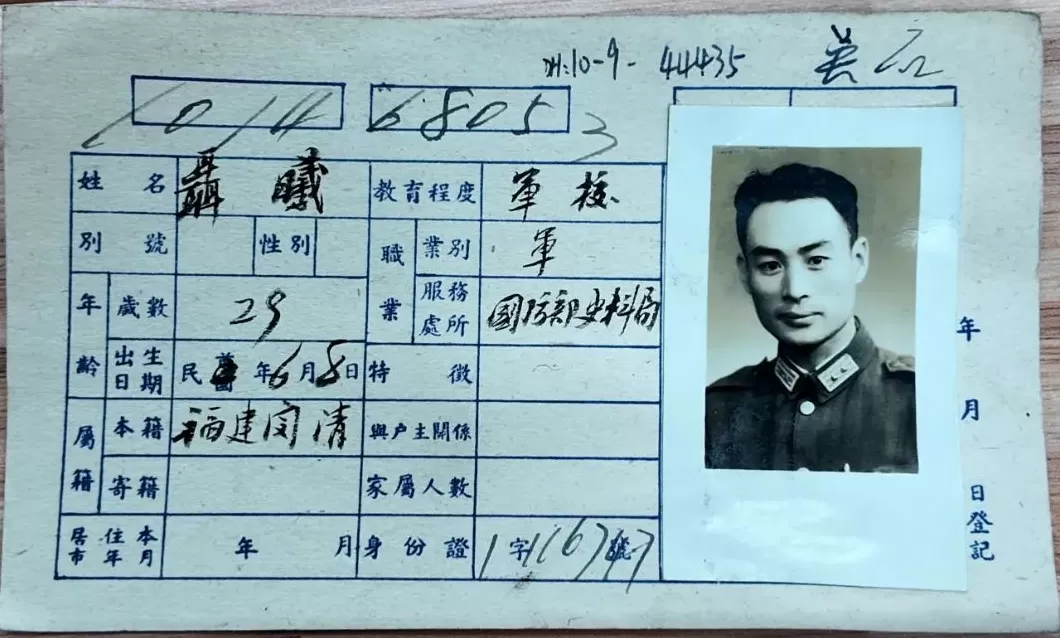 기:10-9-44435
1014 68053
姓名 聶曦 教育程度 軍校
別號 性別 職業 業別 軍
年齡 歲數 29 服務處所 國防部史料局
出生日期 民國 年6月8日 特徵
屬籍 本籍 福建閩清 與户主關係
寄籍 家屬人數
居住本市年月 年 月 身份證 字 號
年 月 日登記